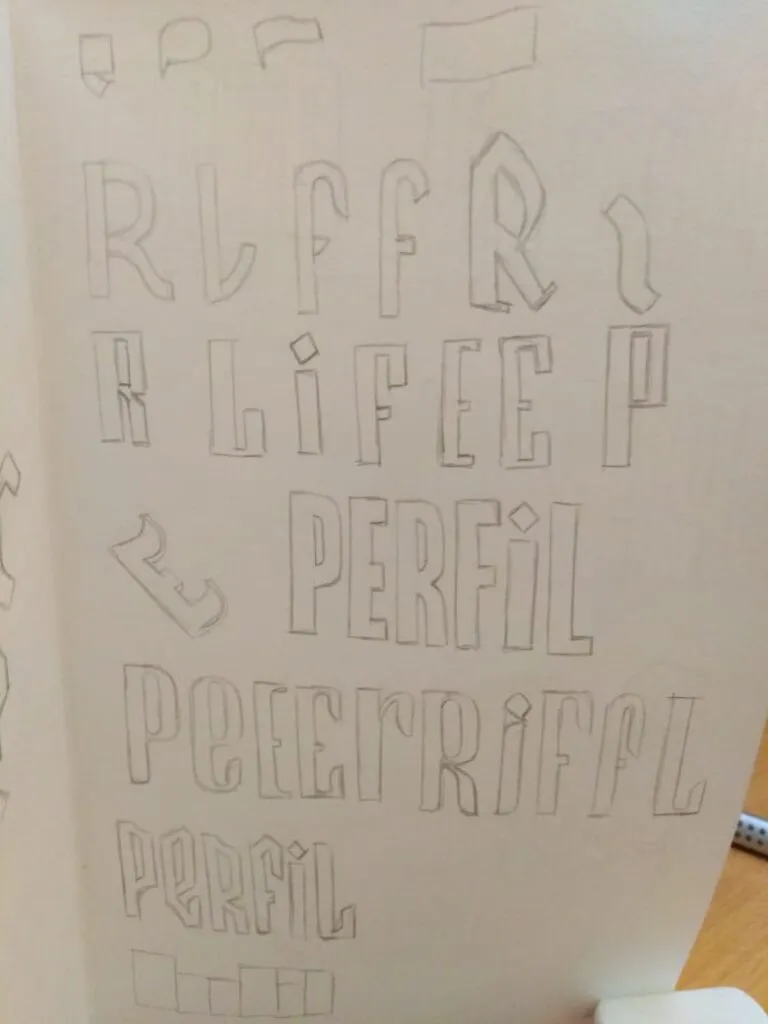 R L F F R
R L i F E E P
E PERFiL
PeEErRiFFL
PeRFiL